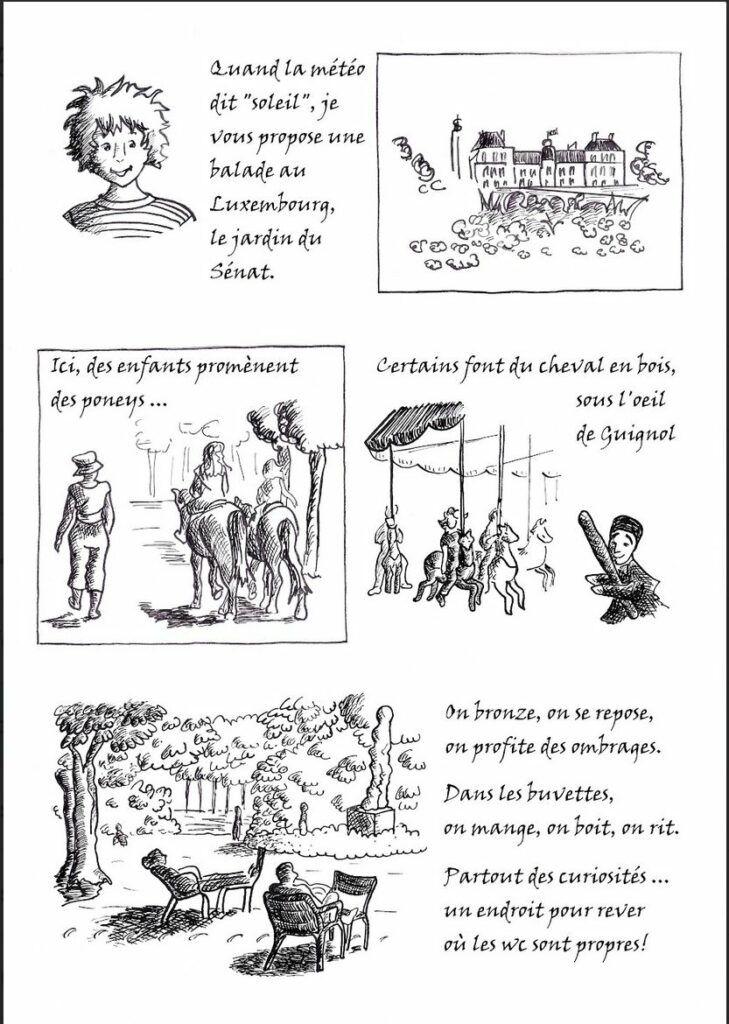 Quand la météo
dit "soleil", je
vous propose une
balade au
Luxembourg,
le jardin du
Sénat.
Ici, des enfants promènent
des poneys ...
Certains font du cheval en bois,
sous l'oeil
de Guignol
On bronze, on se repose,
on profite des ombrages.
Dans les buvettes,
on mange, on boit, on rit.
Partout des curiosités ...
un endroit pour rever
où les wc sont propres!